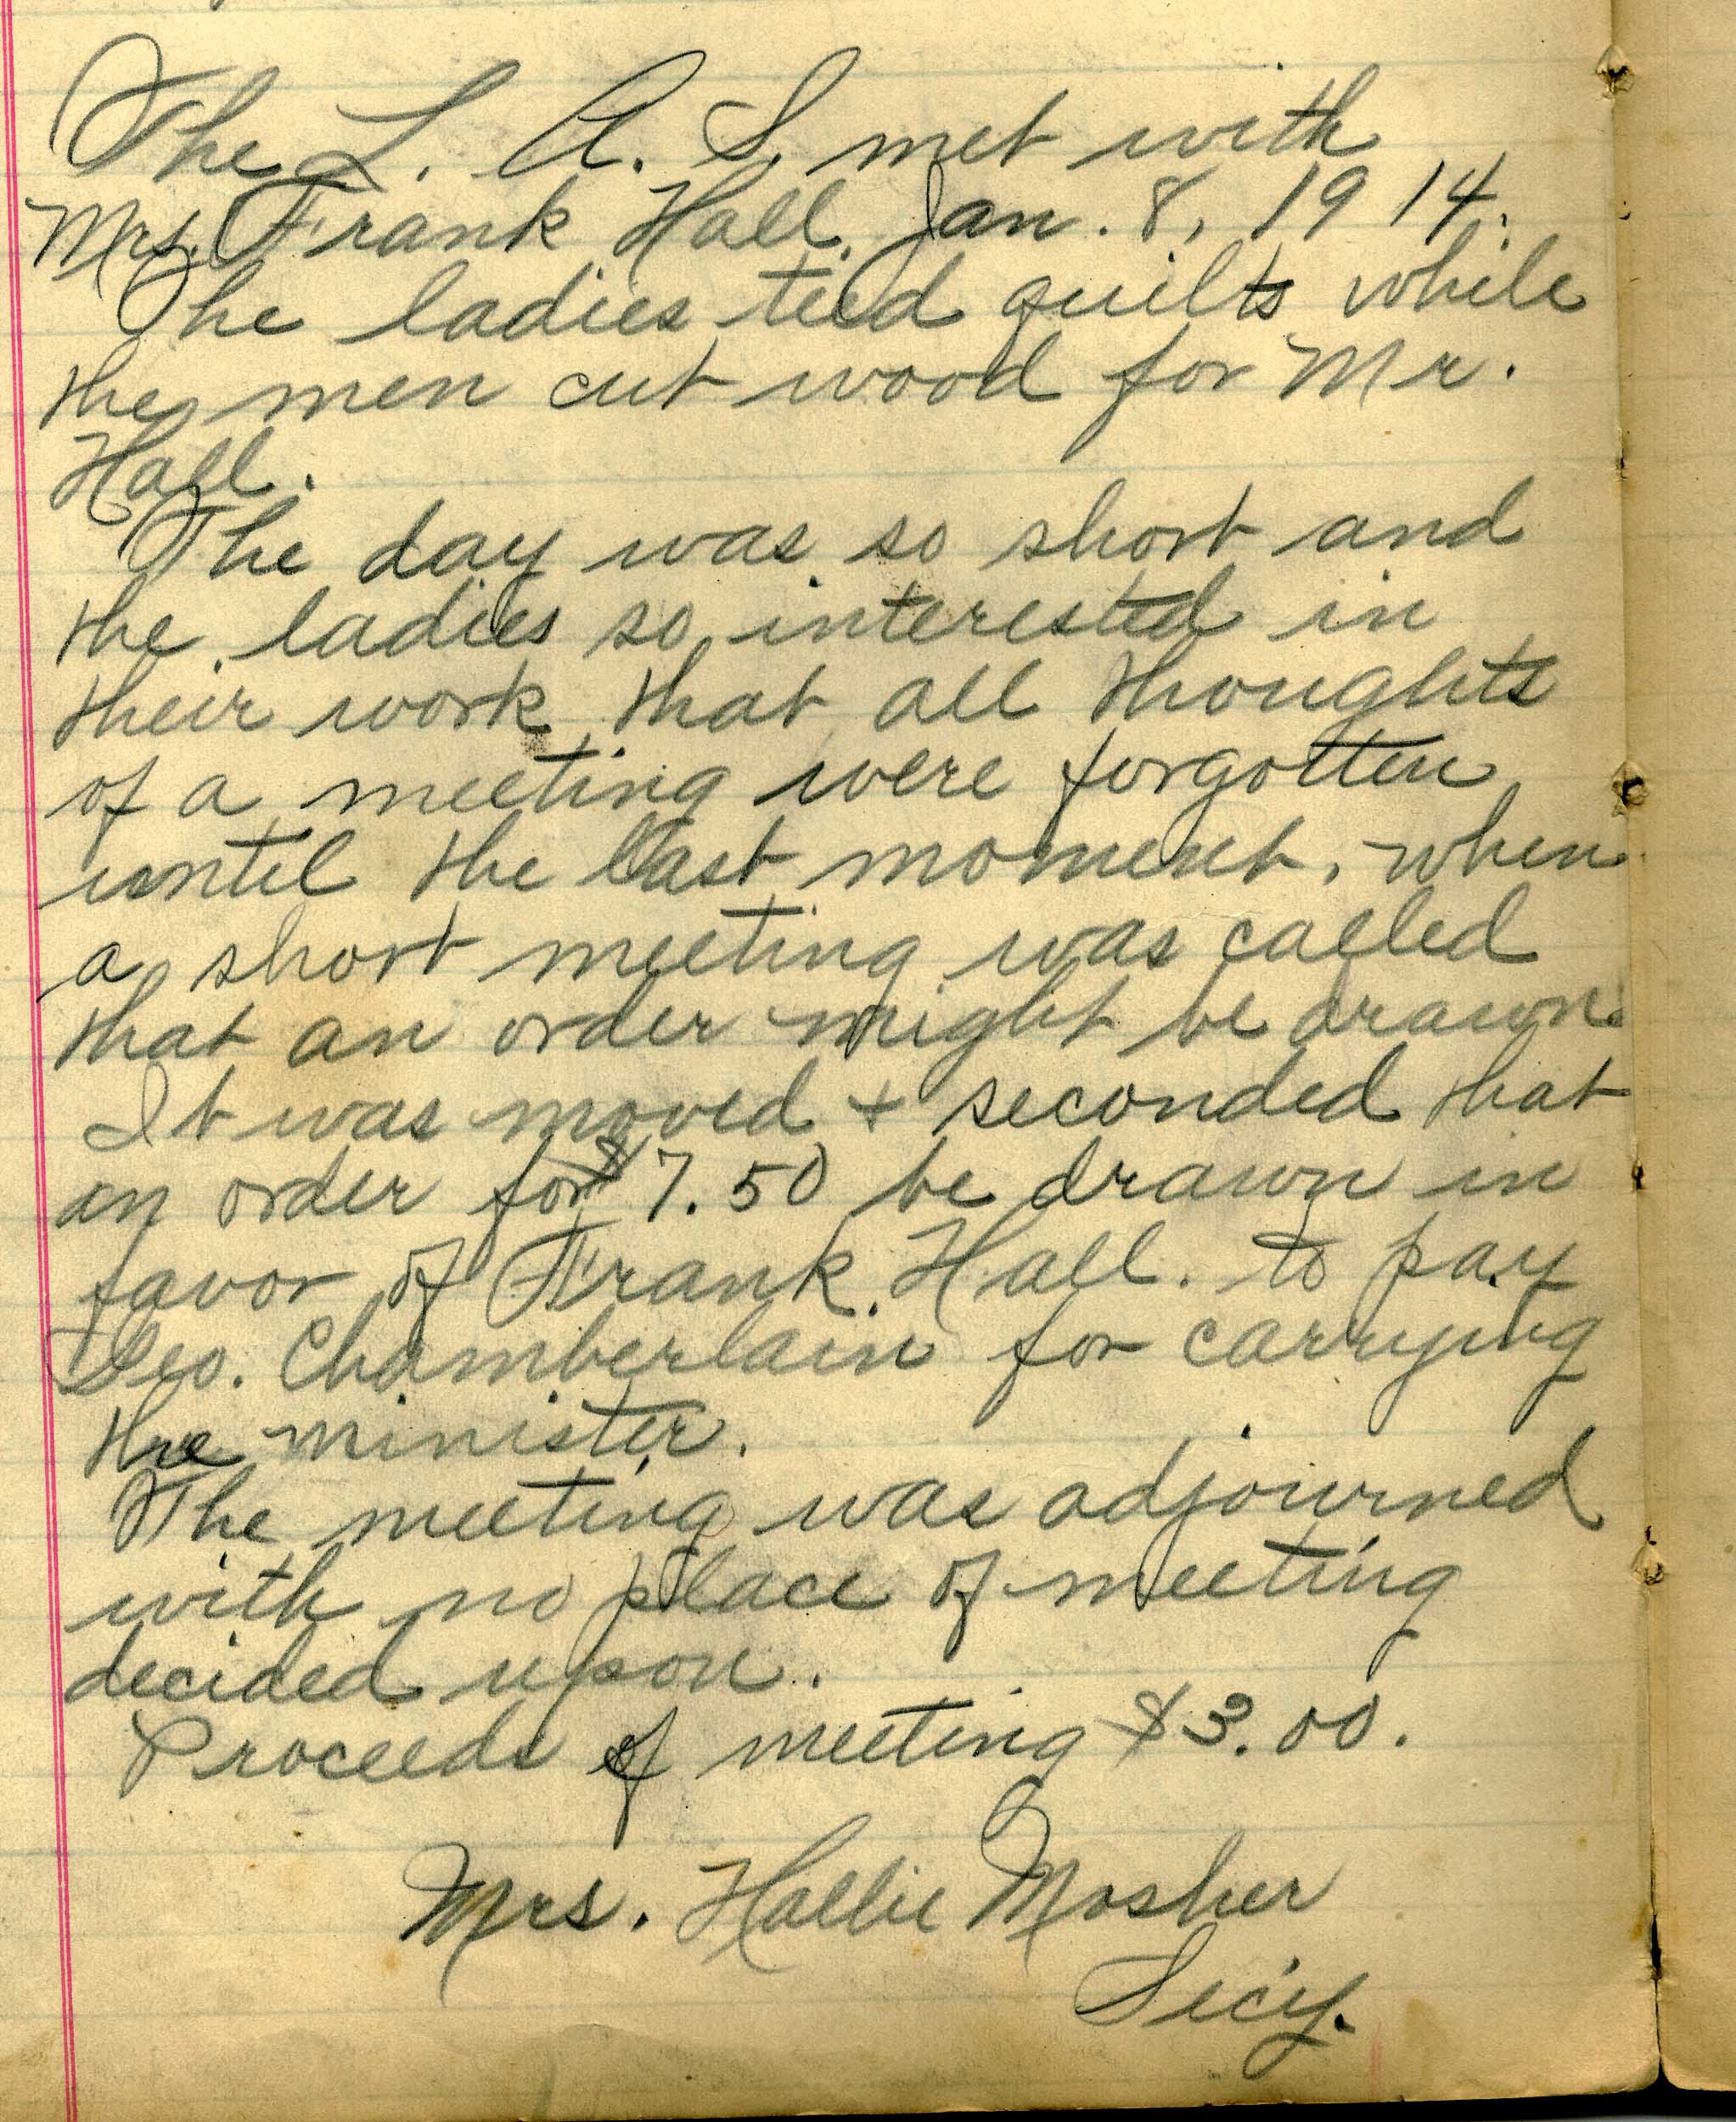 The L. A. S. met with
Mrs. Frank Hall. Jan. 8, 1914.
The ladies tied quilts while
the men cut wood for Mr.
Hall.
The day was so short and
the ladies so interested in
their work that all thoughts
of a meeting were forgotten
until the last moment, when
a short meeting was called
that an order might be drawn.
It was moved + seconded that
an order for $7.50 be drawn in
favor of Frank Hall. to pay
Geo. Chamberlain for carrying
the minister.
The meeting was adjourned
with no place of meeting
decided upon.
Proceeds of meeting $3.00.
Mrs. Hallie Mosher
Sec'y.